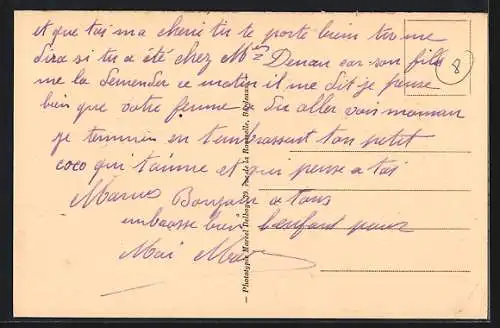 et que toi ma cherie tu te porte bien tu me
dira si tu a été chez Mme Denau car son fils
me la demender ce matin il me dit je pense
bien que votre femme a du aller voir maman
je termine en t'embrassant ton petit
coco qui t'aime et qui pense a toi
Bonjour a tous
embrasse bien lenfant pour
Moi
Phototypie Marcel Delboy, rue de la
8